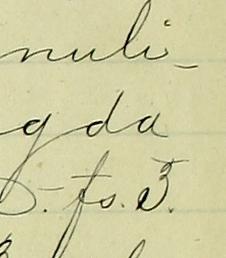 nuli-
g da
5. fs. 3.